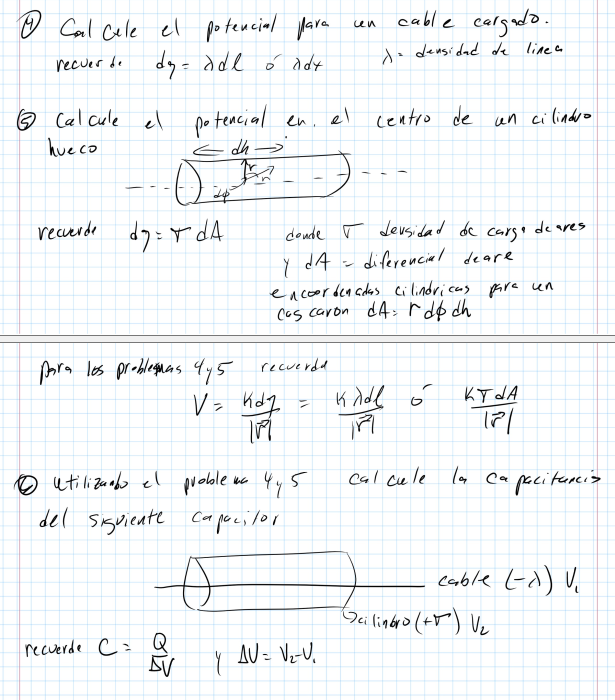 ④ Calcule el potencial para un cable cargado.
recuerde dq = λdl ó λdx λ = densidad de linea
⑤ Calcule el potencial en el centro de un cilindro
hueco
dh
r
r
dφ
recuerde dq = σ dA donde σ densidad de carga de area
y dA = diferencial de are
en coordenadas cilíndricas para un
cascaron dA = r dφ dh
para los problemas 4 y 5 recuerda
V = Kdq/|r⃗| = Kλdl/|r⃗| ó KσdA/|r⃗|
⑥ utilizando el problema 4 y 5 calcule la capacitancia
del siguiente capacitor
cable (-λ) V₁
cilindro (+σ) V₂
recuerde C = Q/ΔV y ΔV = V₂-V₁